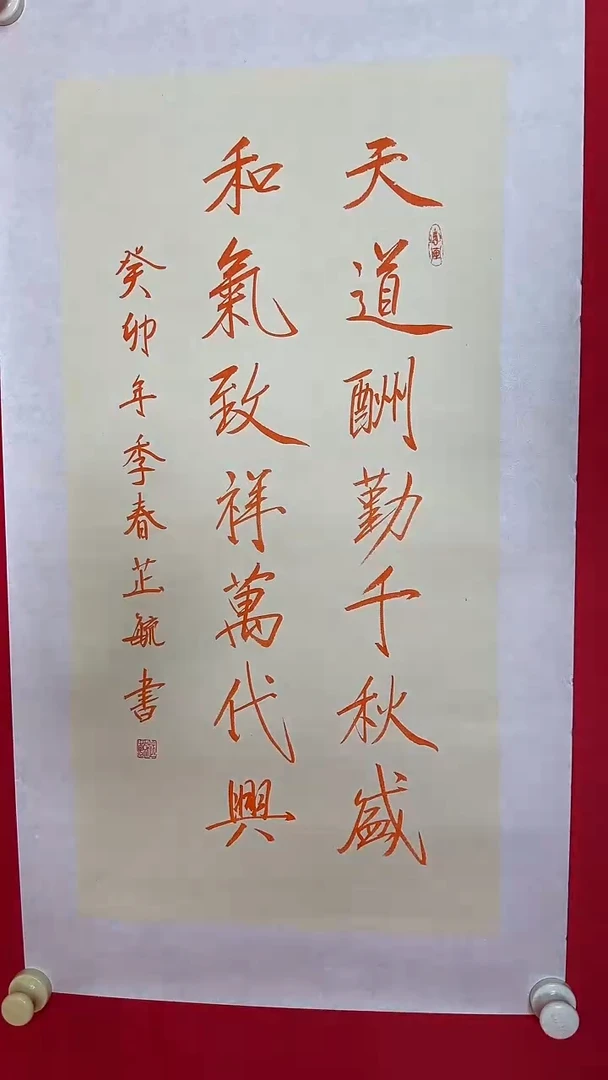 天道酬勤千秋盛
和氣致祥萬代興
癸卯年季春芷毓书